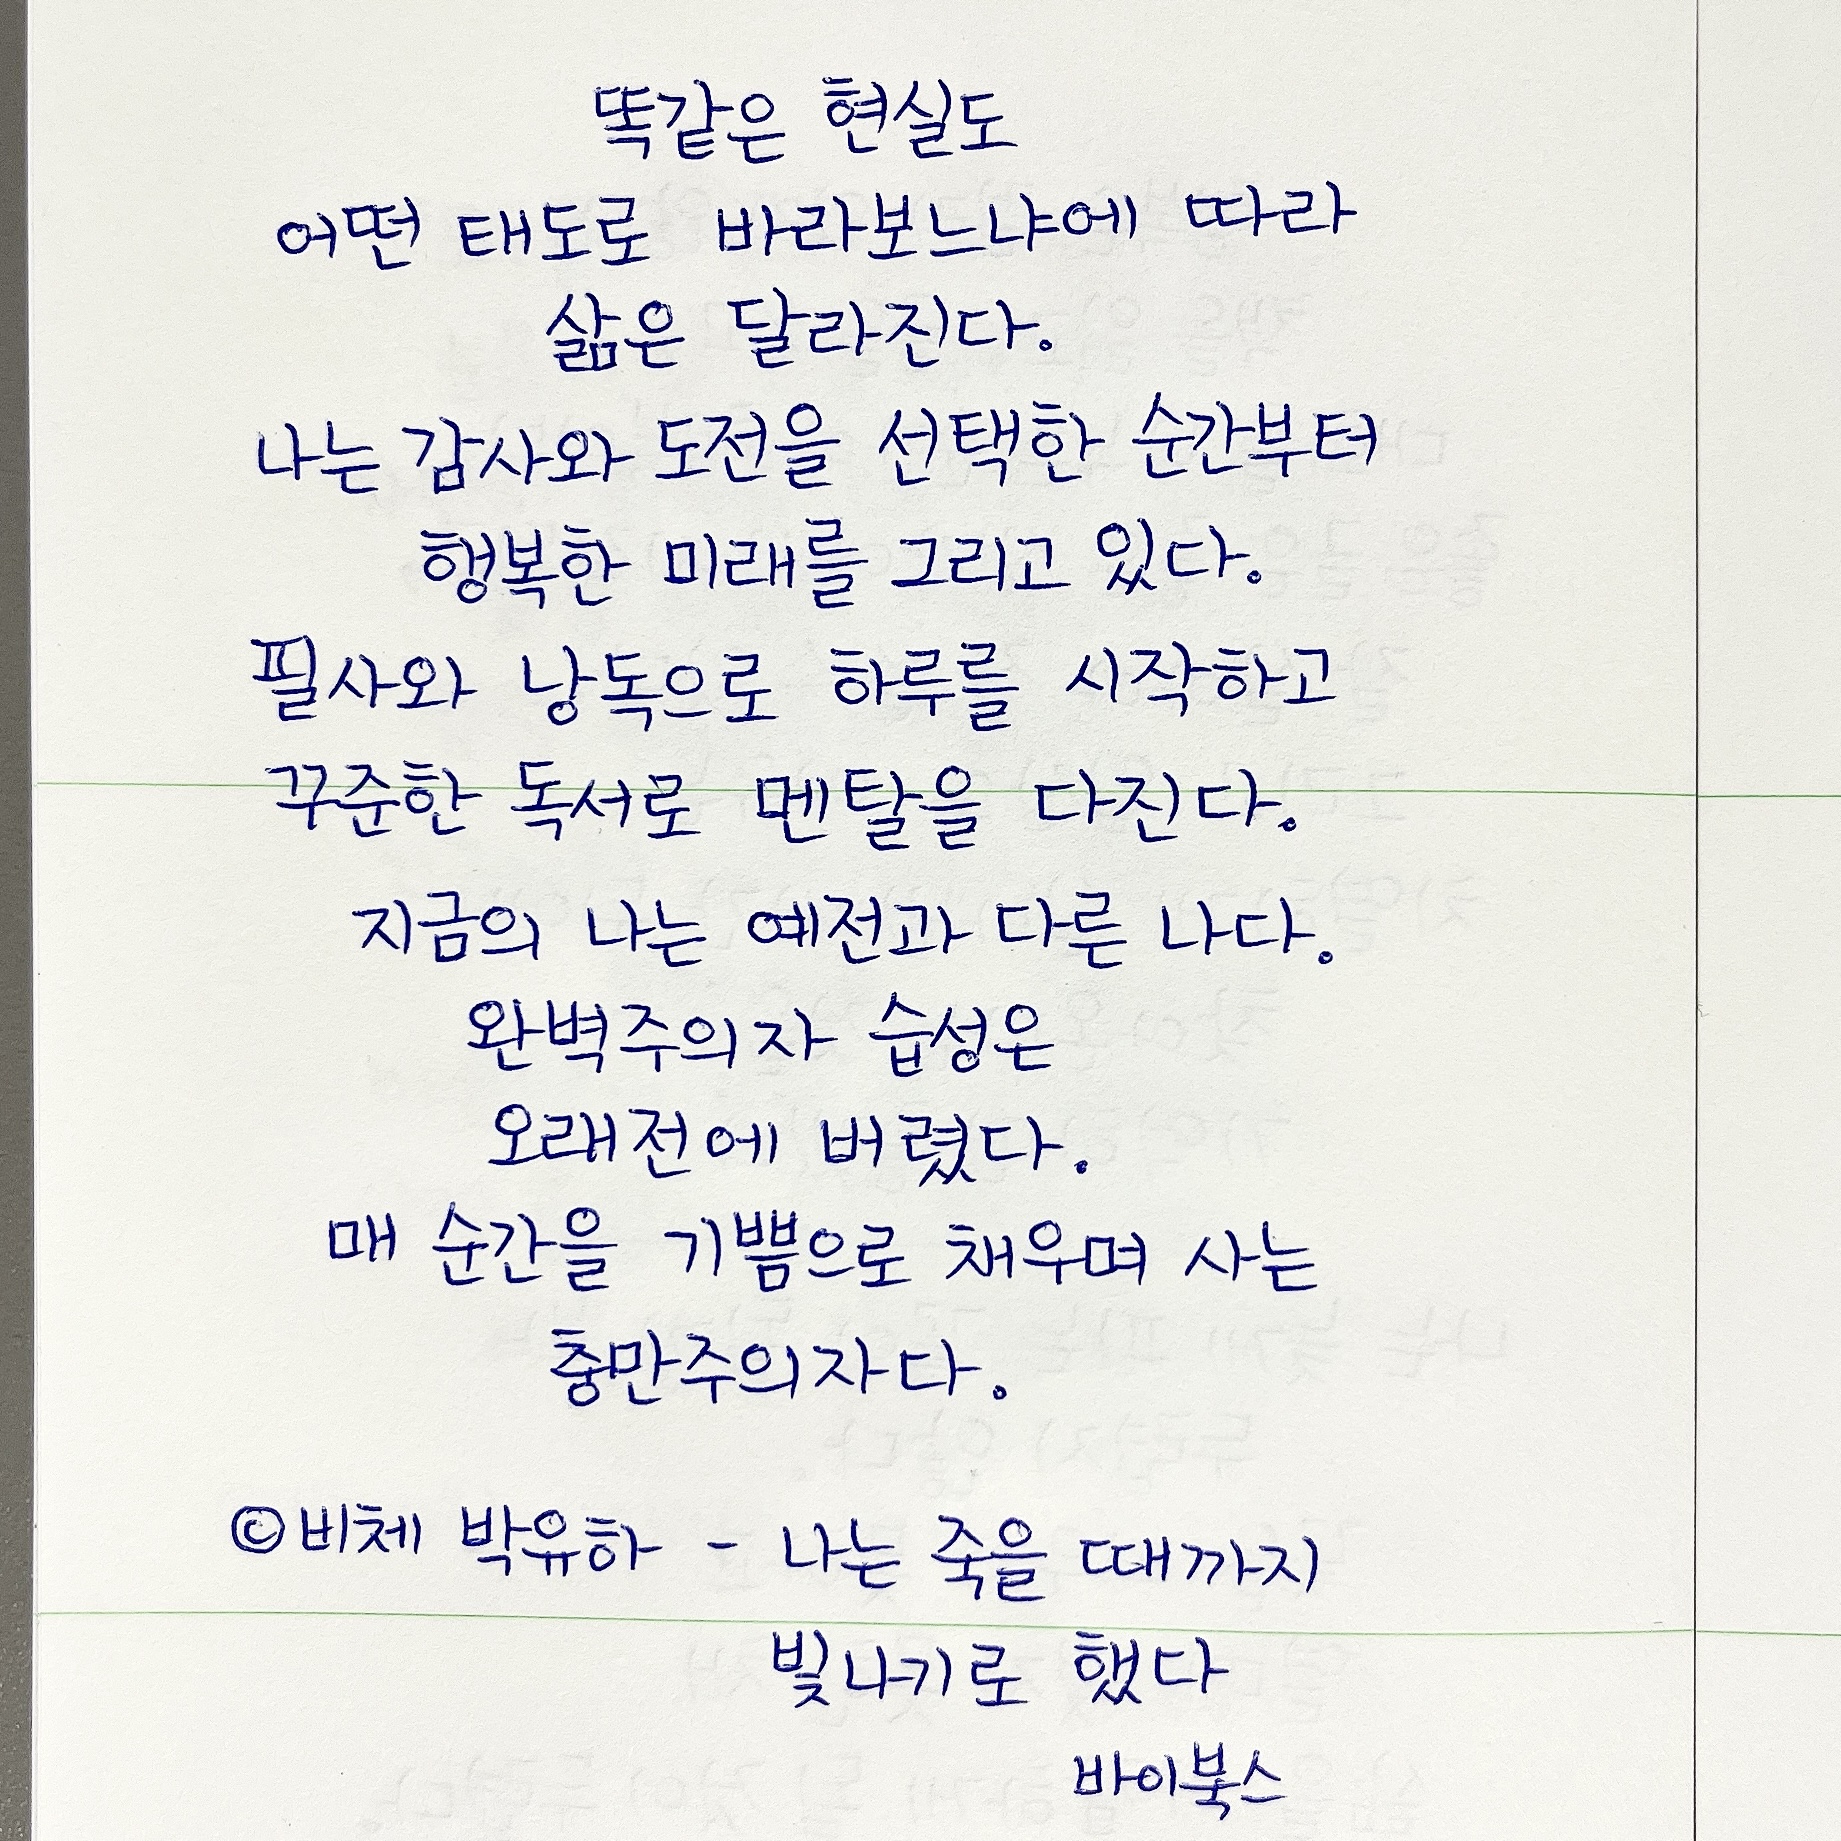 똑같은 현실도
어떤 태도로 바라보느냐에 따라
삶은 달라진다.
나는 감사와 도전을 선택한 순간부터
행복한 미래를 그리고 있다.
필사와 낭독으로 하루를 시작하고
꾸준한 독서로 멘탈을 다진다.
지금의 나는 예전과 다른 나다.
완벽주의자 습성은
오래전에 버렸다.
매 순간을 기쁨으로 채우며 사는
충만주의자다.
©비체 박유하 - 나는 죽을 때까지
빛나기로 했다
바이북스